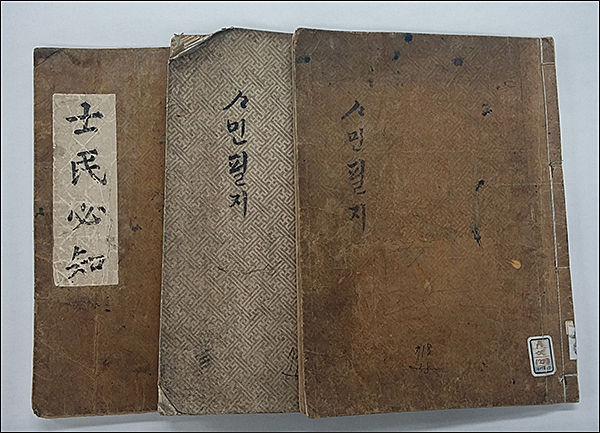 士民必知
ᄉᆞ민필지
ᄉᆞ민필지